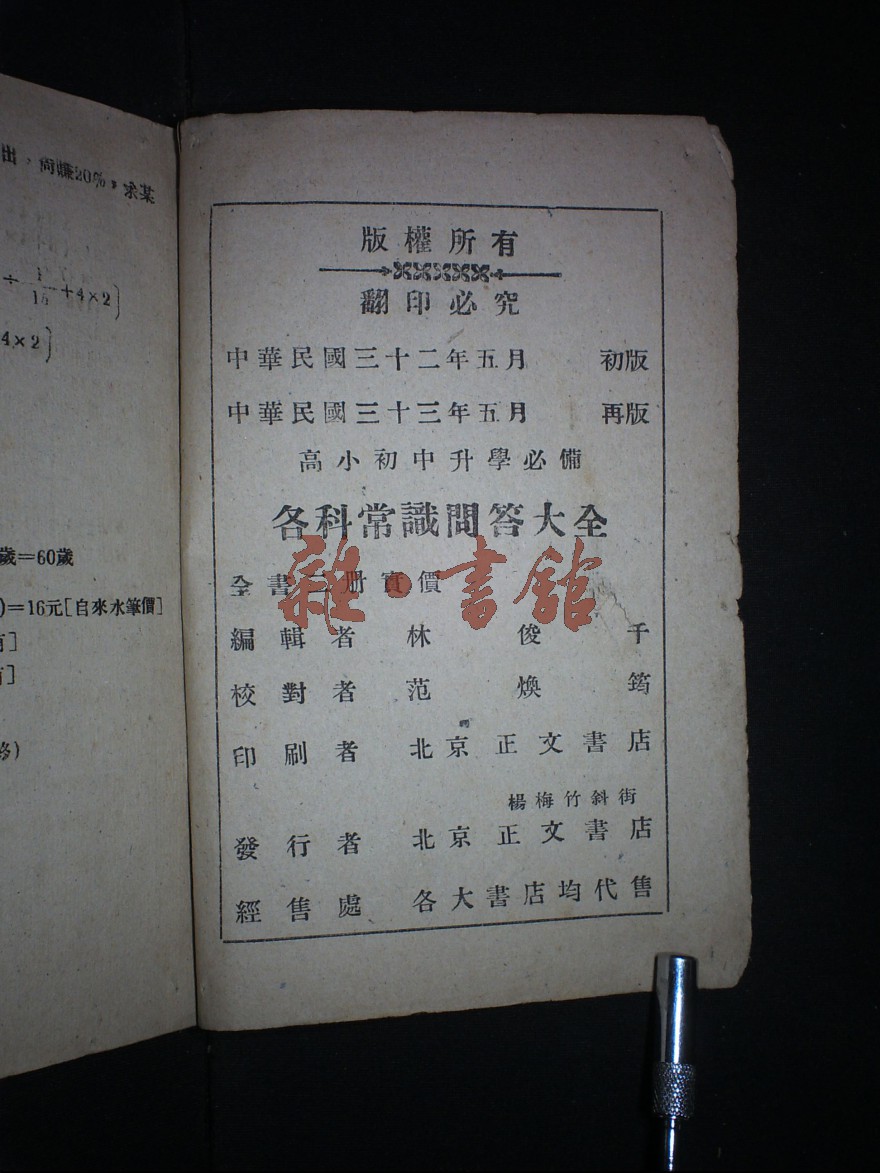 出，尚賺20%，求某
+4×2]
4×2]
歲=60歲
)=16元[自來水筆價]
版權所有
翻印必究
中華民國三十二年五月 初版
中華民國三十三年五月 再版
高小初中升學必備
各科常識問答大全
全書 册實價
雜·書館
編輯者 林俊千
校對者 范煥筠
印刷者 北京正文書店
楊梅竹斜街
發行者 北京正文書店
經售處 各大書店均代售